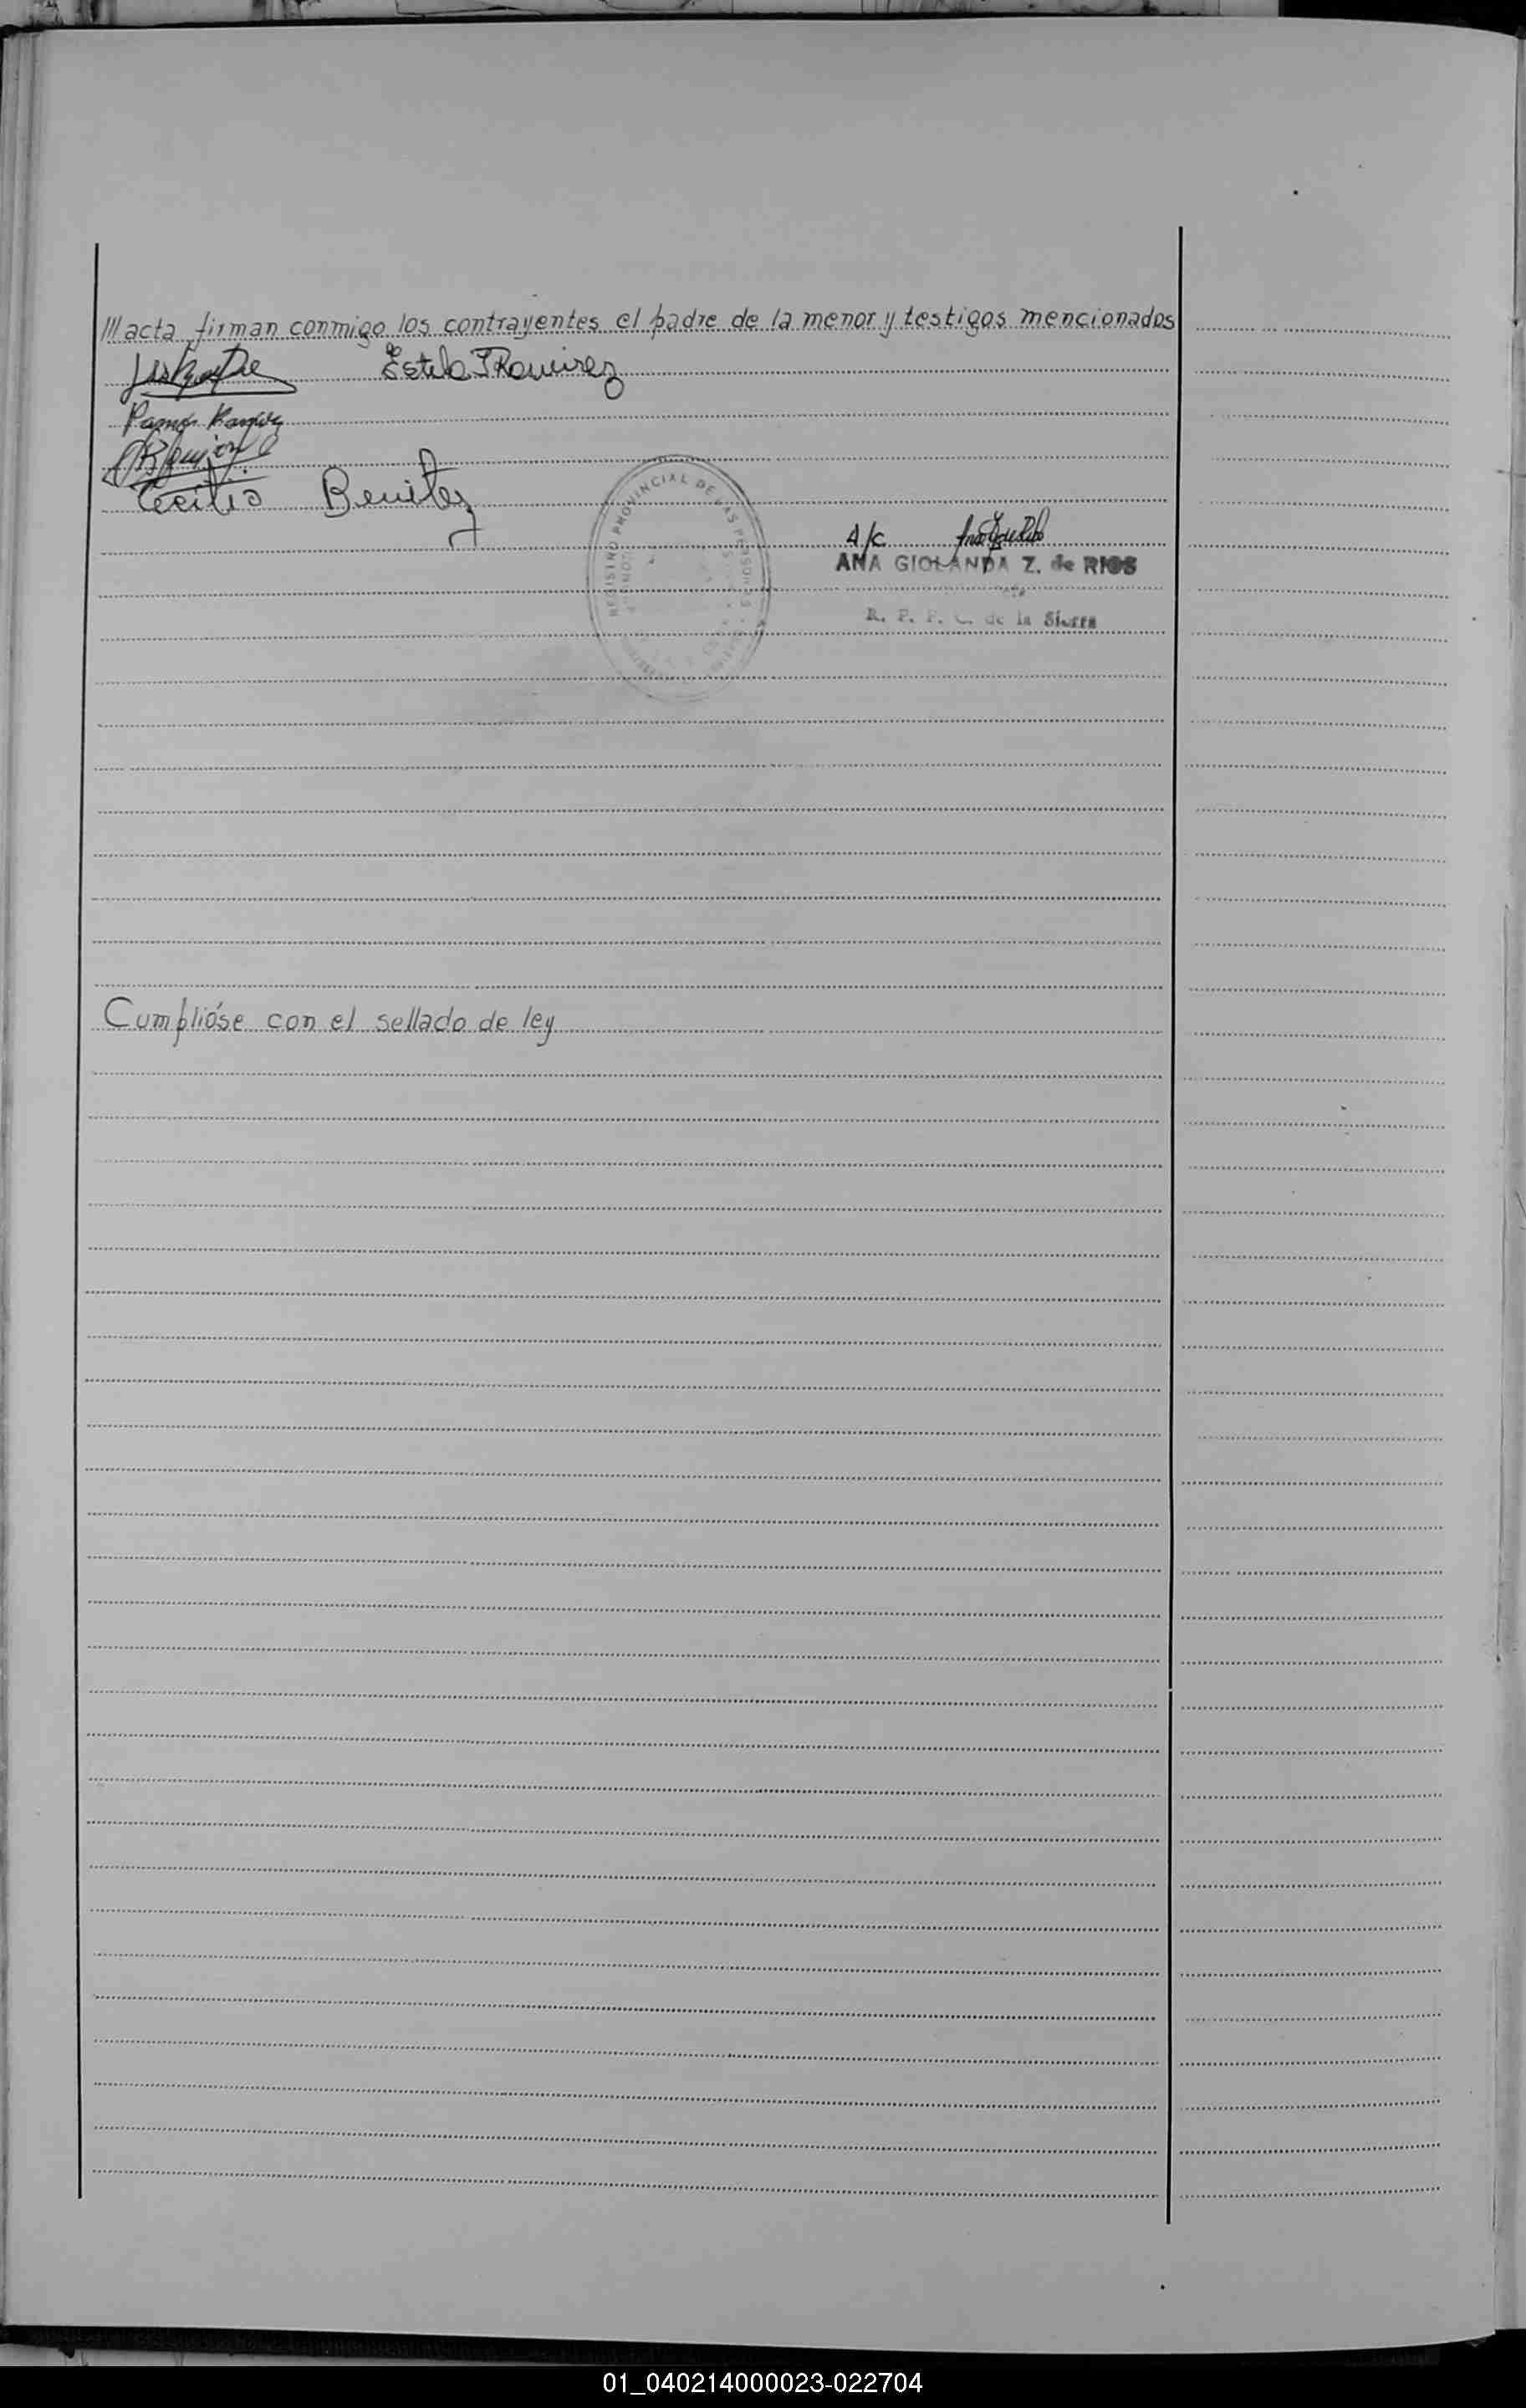 ///acta firman conmigo los contrayentes el padre de la menor y testigos mencionados
Estela Ramirez
Ramon Ramirez
Cecilio Benitez
REGISTRO PROVINCIAL DE LAS PERSONAS
A/C
ANA GIOLANDA Z. de RIOS
R. P. P. C. de la Sierra
Cumplióse con el sellado de ley
01_040214000023-022704